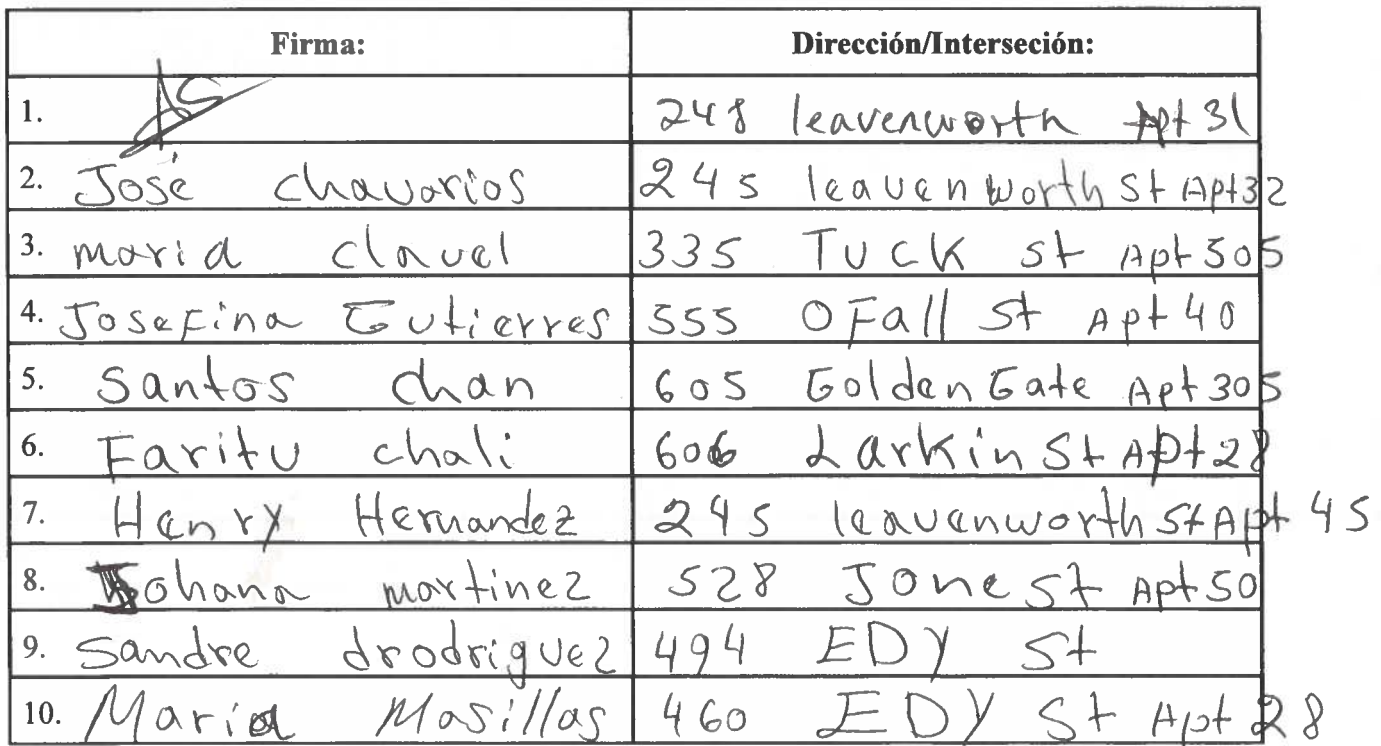 Firma: Dirección/Interseción:
1. 248 leavenworth Apt 31
2. José chavarios 245 leavenworth St Apt 32
3. maria clavel 335 TUCK st Apt 505
4. Josefina Gutierres 555 OFall St Apt 40
5. Santos chan 605 Golden Gate Apt 305
6. Faritu chali 606 Larkin St Apt 28
7. Henry Hernandez 245 leavenworth St Apt 45
8. Johana martinez 528 Jone St Apt 50
9. Sandre drodriguez 494 EDY St
10. Maria Masillas 460 EDY St Apt 28